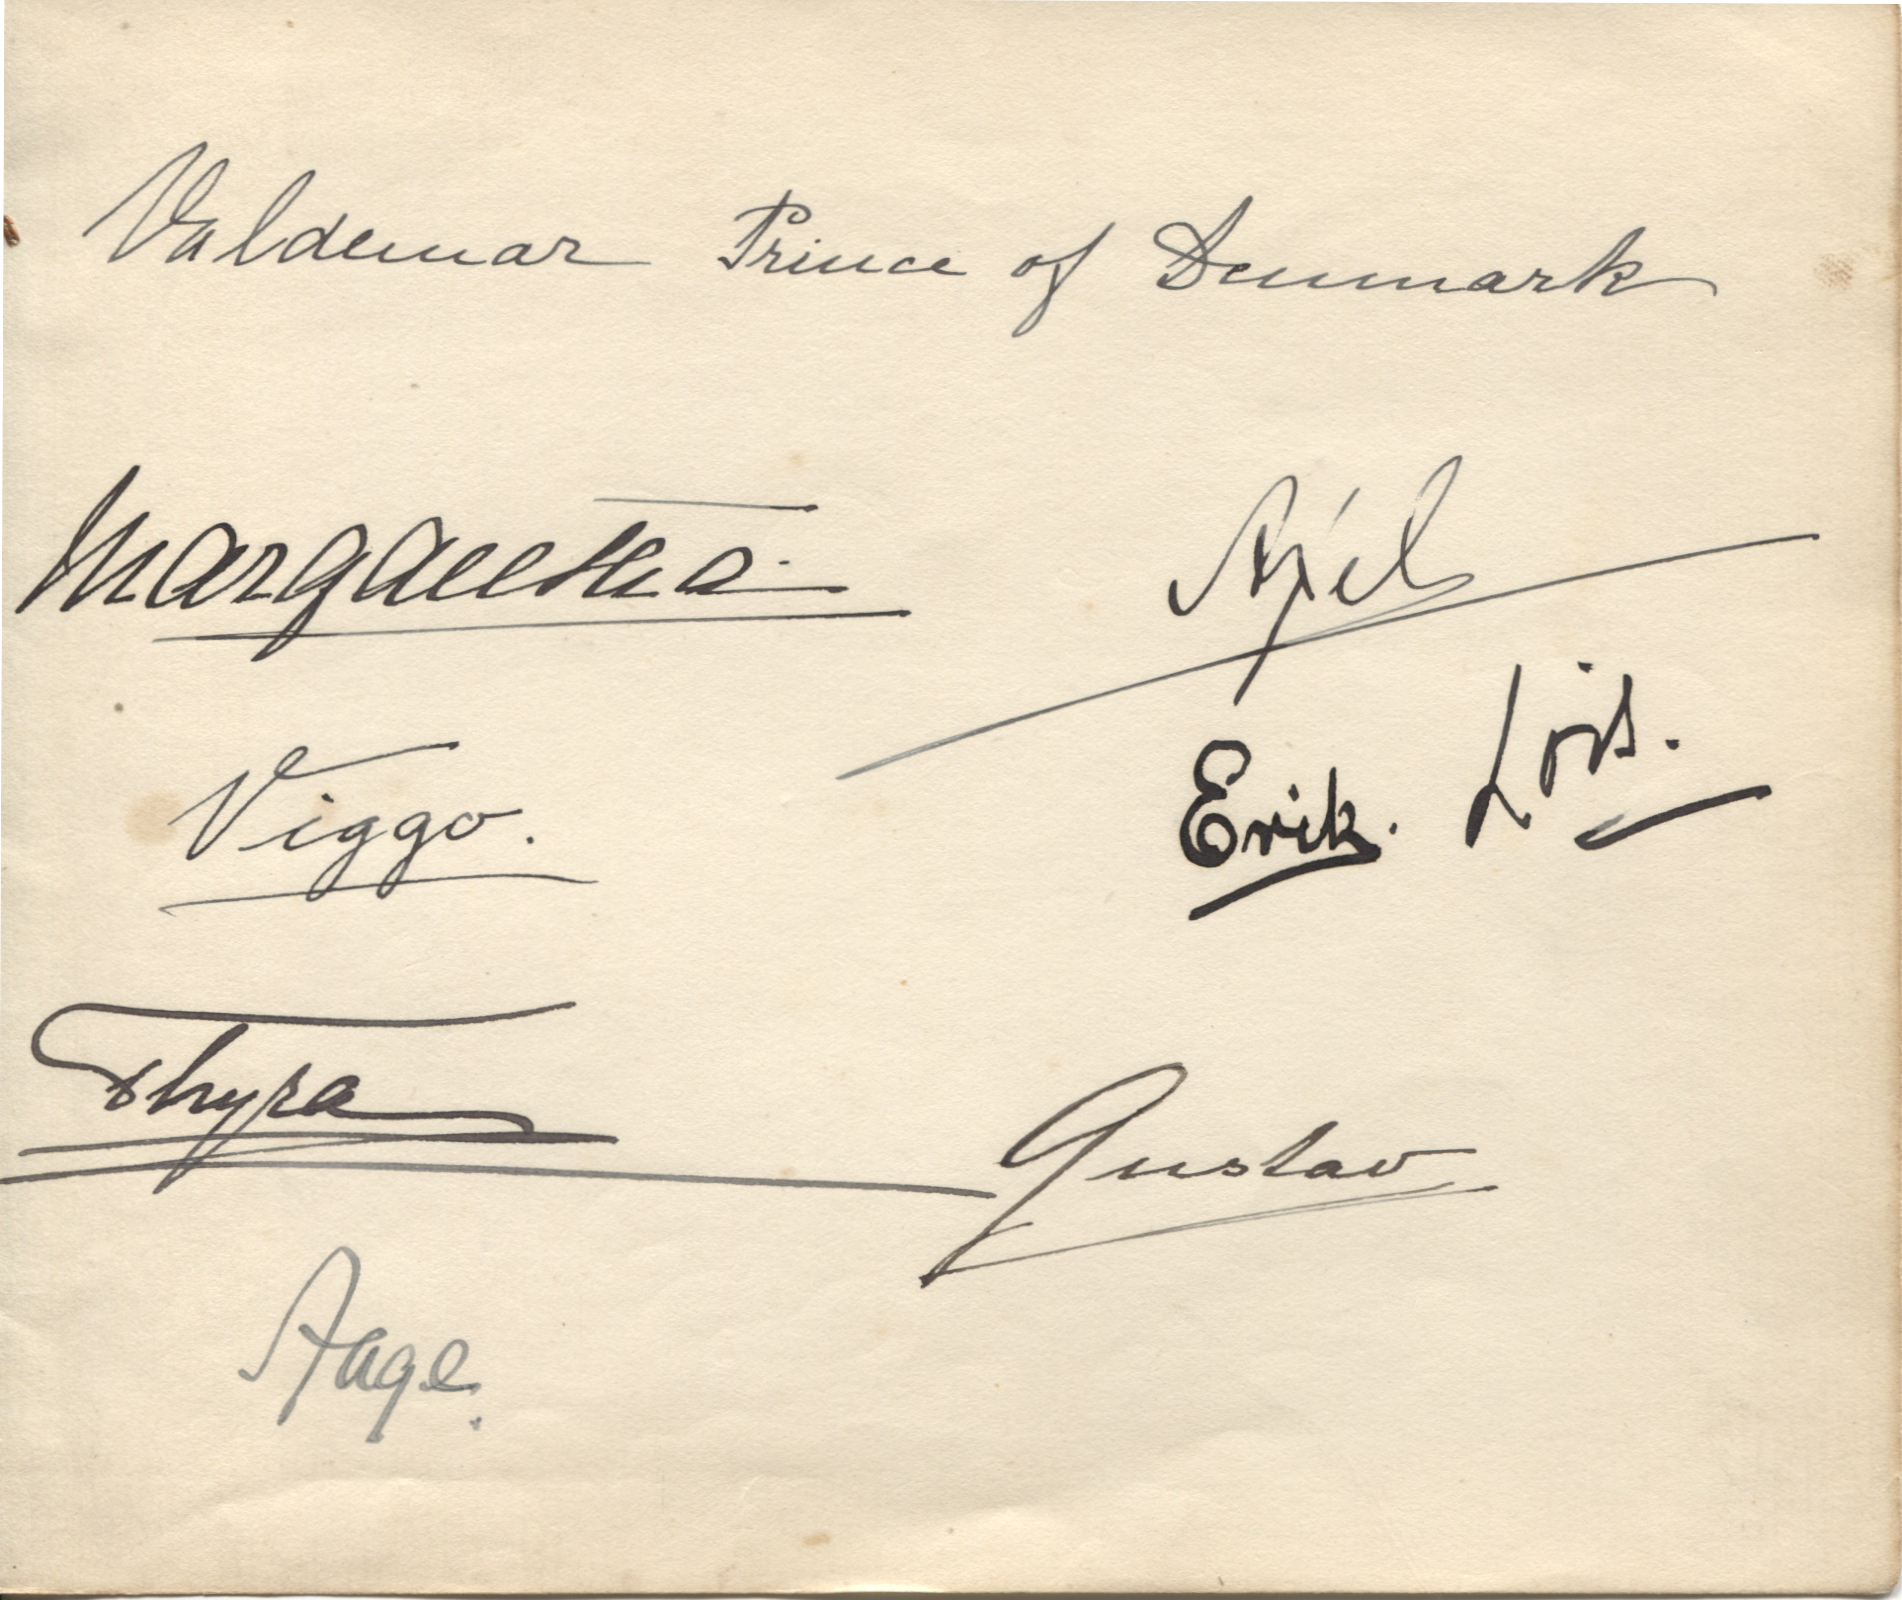 Valdemar Prince of Denmark
Margaretha
Axel
Viggo.
Erik. Lois.
Thyra
Gustav
Aage.